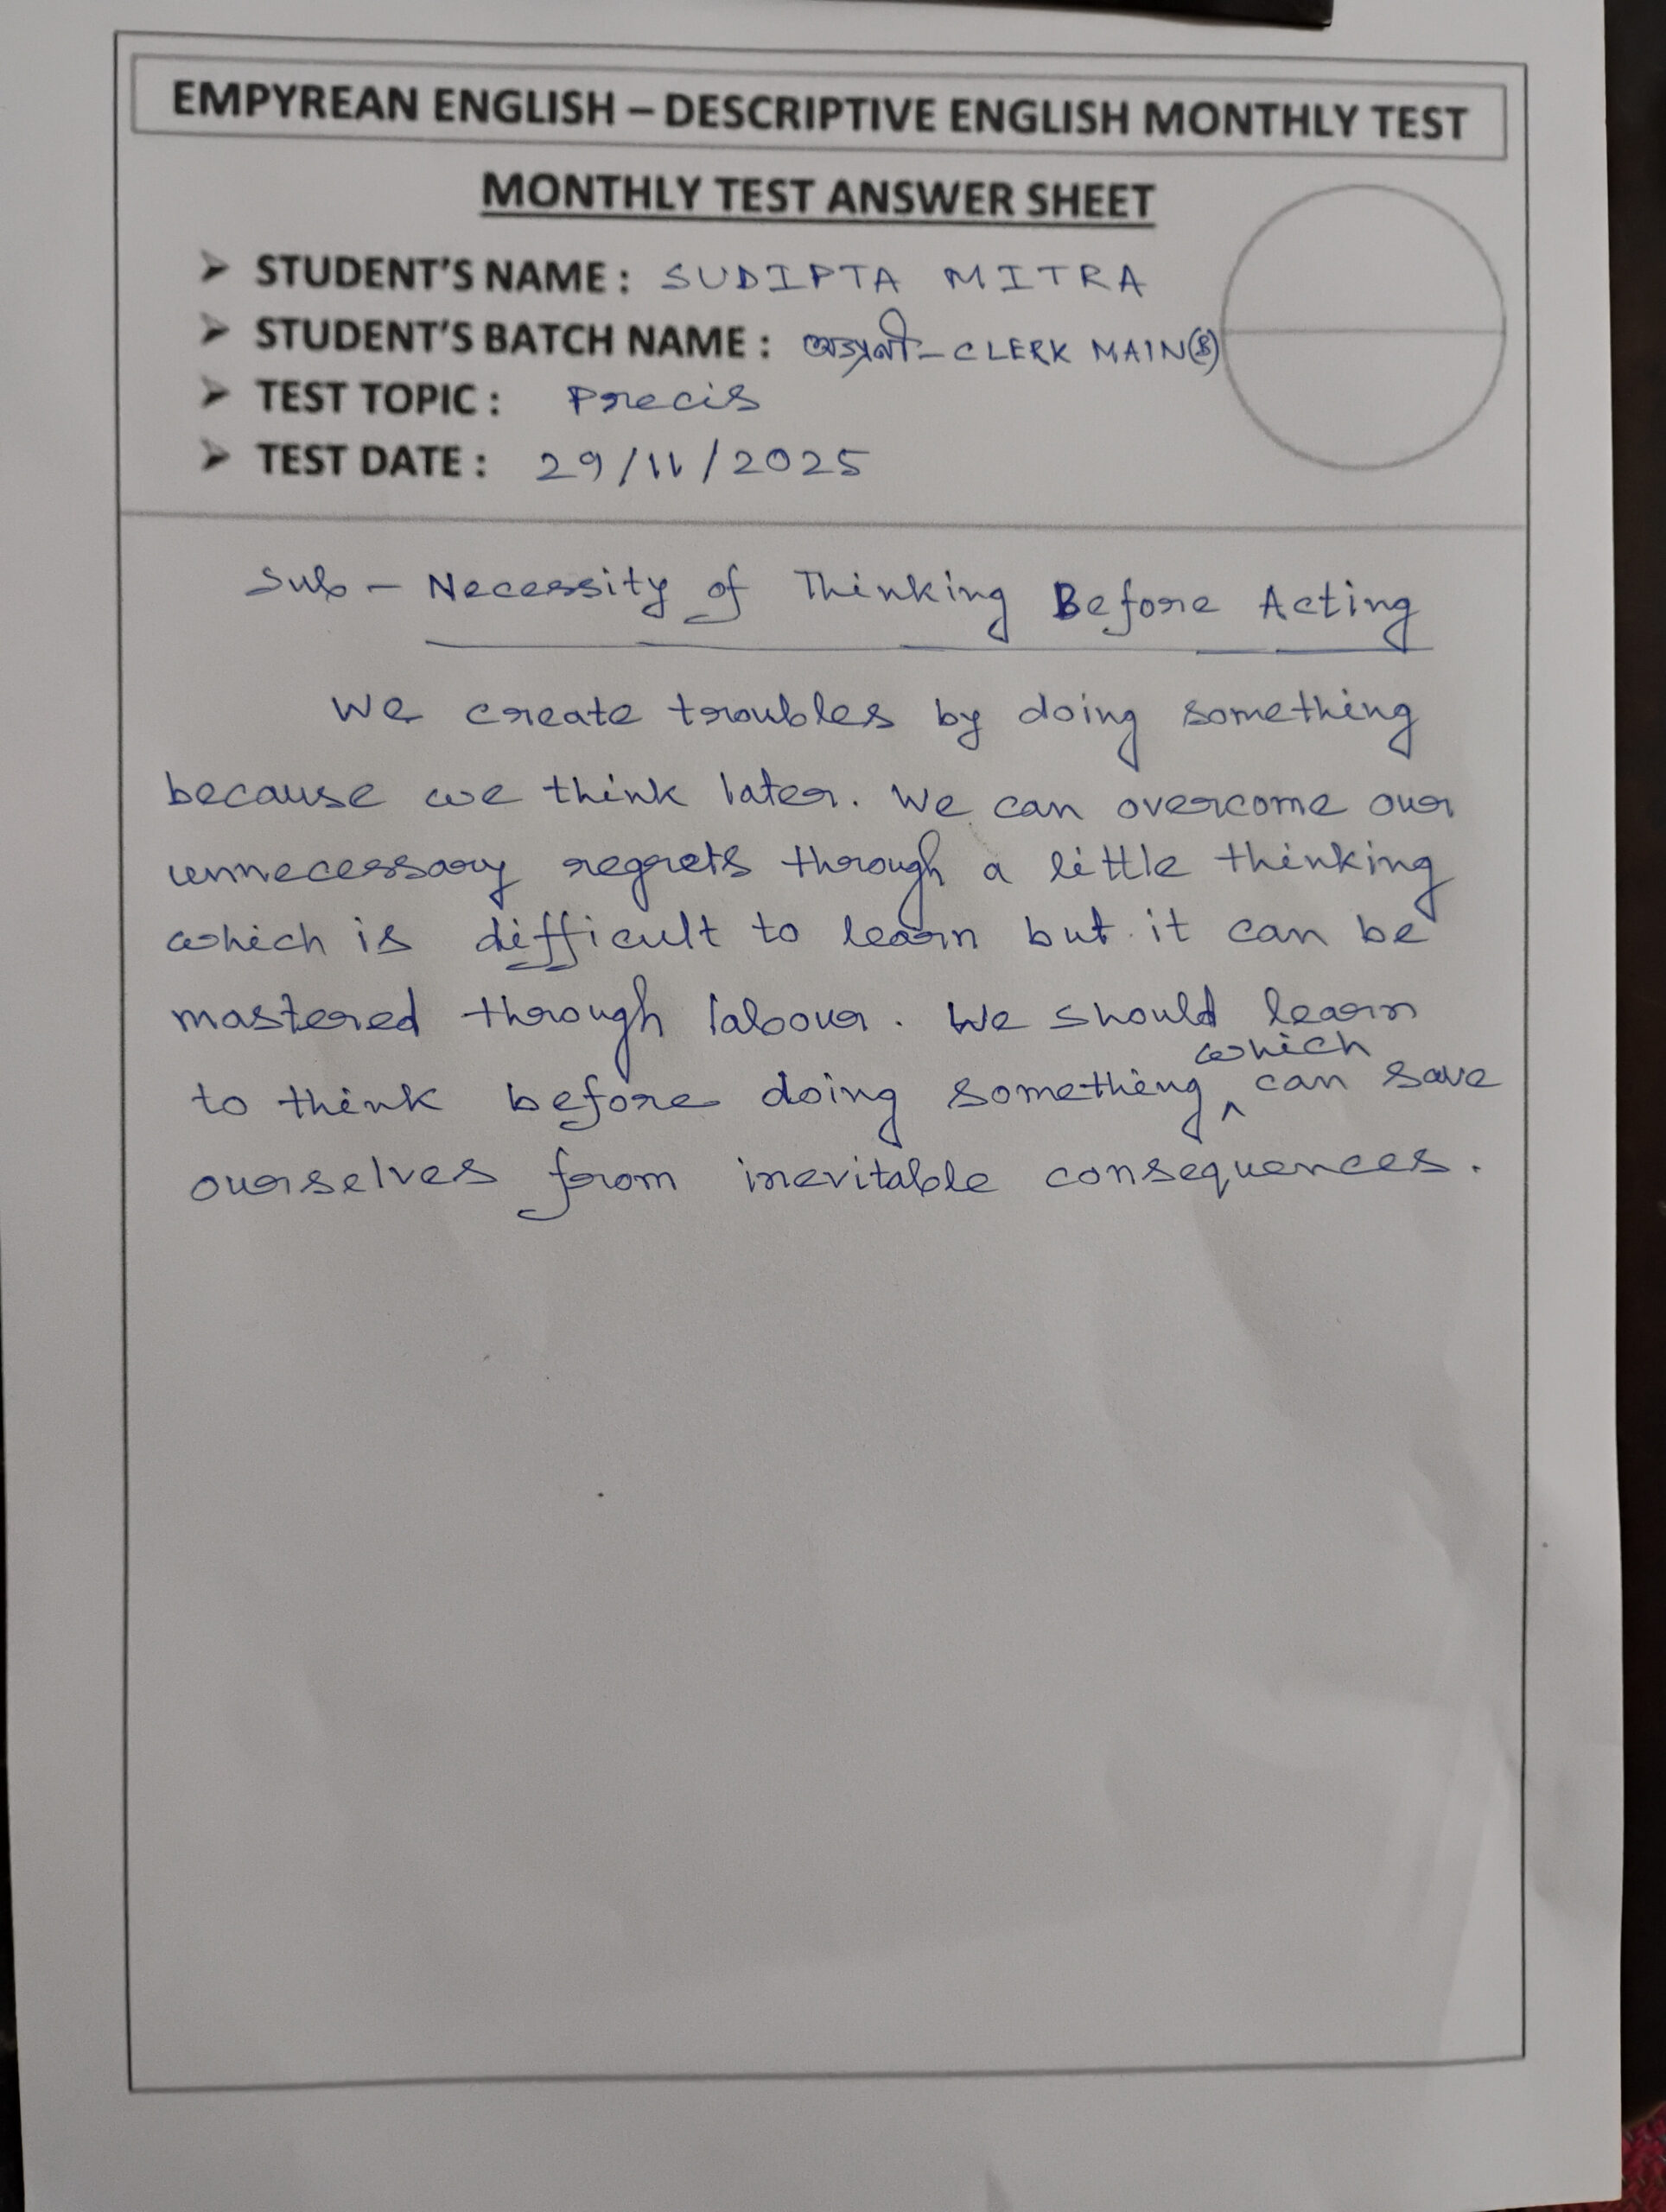 EMPYREAN ENGLISH – DESCRIPTIVE ENGLISH MONTHLY TEST
MONTHLY TEST ANSWER SHEET
➤ STUDENT'S NAME : SUDIPTA MITRA
➤ STUDENT'S BATCH NAME : অগ্রণী – CLERK MAIN(B)
➤ TEST TOPIC : Precis
➤ TEST DATE : 29/11/2025
Sub – Necessity of Thinking Before Acting
We create troubles by doing something
because we think later. We can overcome our
unnecessary regrets through a little thinking
which is difficult to learn but it can be
mastered through labour. We should learn
to think before doing something which can save
ourselves from inevitable consequences.